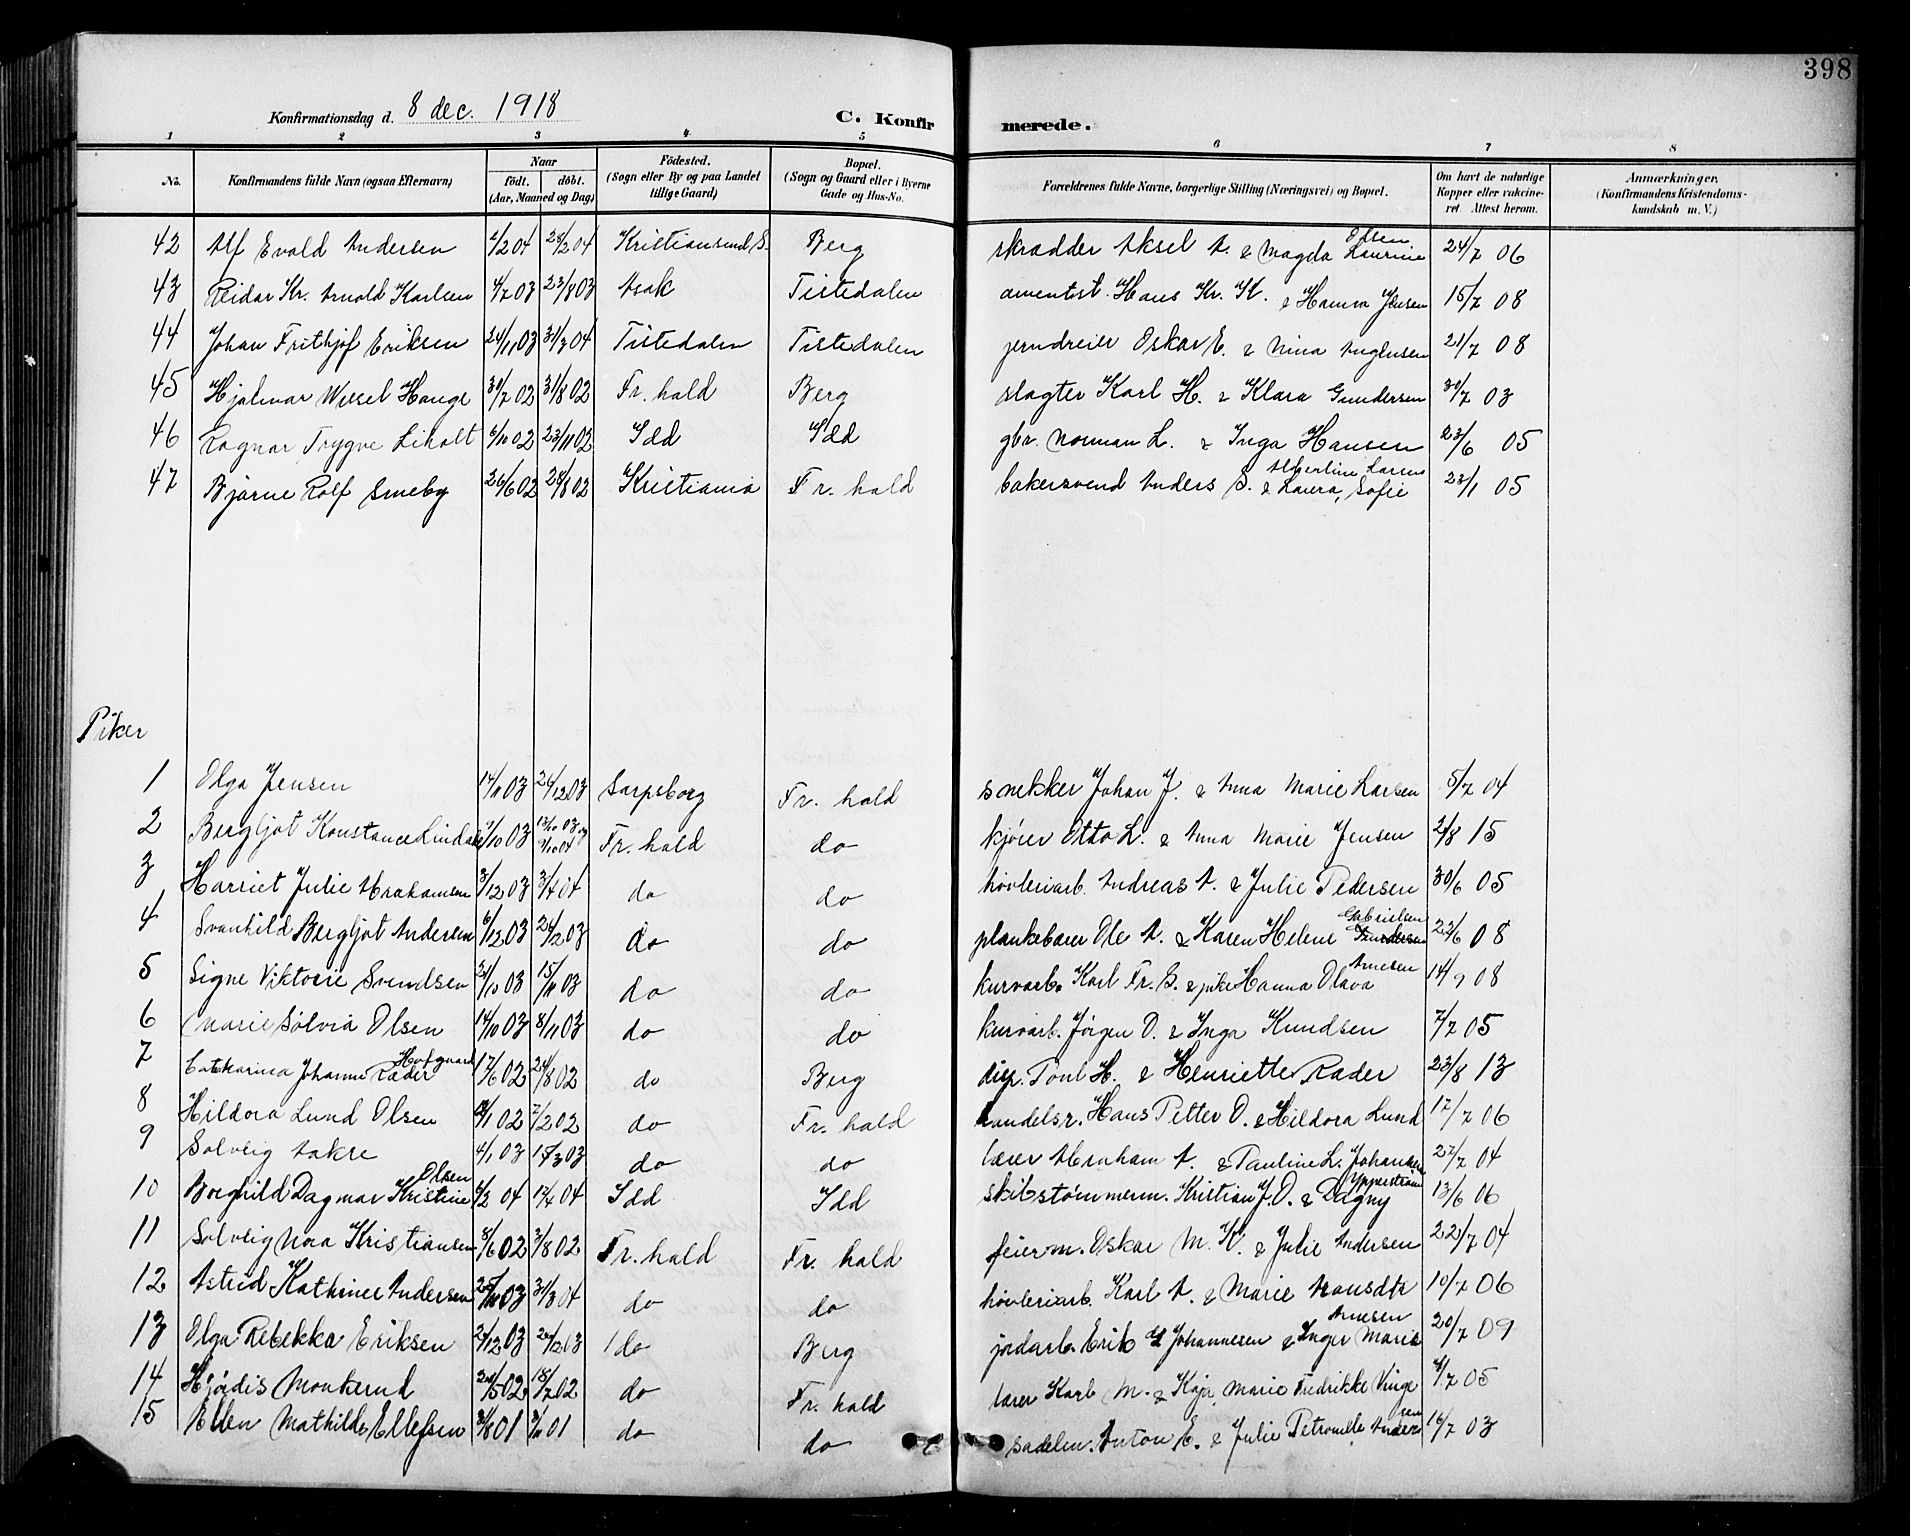 398
Konfirmationsdag d. 8 dec. 1918 C. Konfirmerede.
1 2 3 4 5 6 7 8
No. Konfirmandens fulde Navn (ogsaa Efternavn) Naar født. døbt. (Aar, Maaned og Dag) Födested. (Sogn eller By og paa Landet tillige Gaard) Bopæl. (Sogn og Gaard eller i Byerne Gade og Hus-No. Forældrenes fulde Navne, borgerlige Stilling (Næringsvei) og Bopæl. Om havt de naturlige Kopper eller vakcineret. Attest herom. Anmærkninger, (Konfirmandens Kristendomskundskab m. V.)
42 Alf Evald Andersen 1/2 04 28/2 04 Kristiansund S. Berg skrædder Aksel A. & Magda Laurine Olsen 24/7 06
43 Reidar Kr. Arnold Karlsen 4/7 03 23/8 03 Asak Tistedalen Hans Kr. K. & Hanna Jensen 15/7 08
44 Johan Frithjof Eriksen 24/11 03 31/3 04 Tistedalen Tistedalen jerndreier Oskar E. & Nina 21/7 08
45 Hjalmar Wesel Hauge 30/7 02 31/8 02 Fr. hald Berg slagter Karl H. & Klara Gundersen 30/7 03
46 Ragnar Trygve Liholt 6/10 02 23/11 02 Idd Idd gbr. Norman L. & Inga Hansen 23/6 05
47 Bjarne Rolf Smeby 26/6 02 24/8 02 Kristiania Fr. hald bakersvend Anders S. & Laura, Sofie Alberline Larsen 23/1 05
Piker
1 Olga Jensen 14/11 03 26/12 03 Sarpsborg Fr. hald snekker Johan J. & Anna Marie Larsen 5/7 04
2 Bergljot Konstance Lindahl 2/10 03 13/10 03 Fr. hald do kjører Otto L. & Anna Marie Jensen 2/8 15
3 Harriet Julie Abrahamsen 3/12 03 3/4 04 do do høvleriarb. Andreas A. & Julie Pedersen 30/6 05
4 Svanhild Bergljot Andersen 6/12 03 do do plankebærer Ole A. & Karen Helene Gabrielsen 23/6 08
5 Signe Viktorie Svendsen 31/10 03 15/11 03 do do kurvarb. Karl Fr. S. & pike Hanna Olava Arnesen 14/9 08
6 Marie Sølvia Olsen 14/10 03 8/11 03 do do kurvarb. Jørgen O. & Inga Knudsen 7/7 05
7 Catharina Johanne Rader Hofgaard 17/6 02 24/8 02 do Berg disp. Poul H. & Henriette Rader 23/8 13
8 Hildora Lund Olsen 7/2 02 do Fr. hald handelsr. Hans Petter O. & Hildora Lund 17/7 06
9 Solveig Aakre 4/1 03 15/3 03 do do lærer Abraham A. & Pauline L. Johansen 27/7 04
10 Borghild Dagmar Kristine Olsen 4/2 04 17/4 04 Idd Idd skibstømmerm. Kristian J. O. & Dagny Ypperstrøm 13/6 06
11 Solveig Nora Kristiansen 8/6 02 3/8 02 Fr. hald Fr. hald feierm. Oskar M. K. & Julie Andersen 22/7 04
12 Astrid Kathinca Andersen 31/3 04 do do høvleriarb. Karl A. & Marie Hansdtr 10/7 06
13 Olga Rebekka Eriksen 2/12 03 26/12 03 do Berg jordarb. Erik Johannesen & Inger Marie Arnesen 20/7 09
14 Hjørdis Monkerud 20/5 02 18/7 02 do Fr. hald lærer Karl M. & Kaja Marie Fredrikke Vinge 4/7 05
15 Ellen Mathilde Ellefsen 31/8 01 3/11 01 do do sadelm. Anton E. & Julie Petronelle Andersen 16/7 03